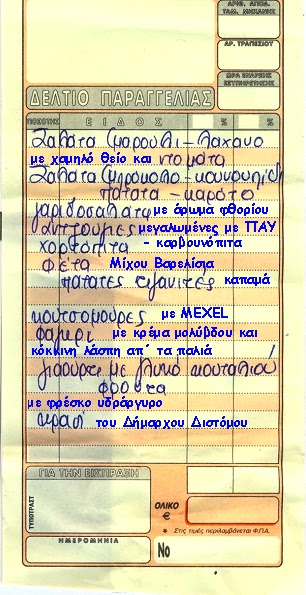 ΑΡΙΘ. ΑΠΟΔ.
ΤΑΜ. ΜΗΧΑΝΗΣ
ΑΡ. ΤΡΑΠΕΖΙΟΥ
ΩΡΑ ΕΝΑΡΞΗΣ
ΕΞΥΠΗΡΕΤΗΣΗΣ
ΔΕΛΤΙΟ ΠΑΡΑΓΓΕΛΙΑΣ
ΠΟΣΟΤΗΣ ΕΙΔΟΣ % %
Σαλάτα Μαρούλι - Λάχανο
με χαμηλό θείο και ντομάτα
Σαλάτα Μπρόκολο - κουνουπίδι
πατάτα - καρότο
γαριδοσαλάτα με άρωμα φθορίου
αντζούγιες μεγαλωμένες με ΠΑΥ
χορτόπιτα - καρβουνόπιτα
φέτα Μίχου Βαρελίσια
πατάτες τιγανιτές καπαμά
κουτσομούρες με MEXEL
φαγκρί με κρέμα μολύβδου και
κόκκινη λάσπη απ΄ τα παλιά
γιαούρτι με γλυκό κουταλιού
φρούτα
με φρέσκο υδράργυρο
κρασί του Δήμαρχου Διστόμου
ΓΙΑ ΤΗΝ ΕΙΣΠΡΑΞΗ
ΤΥΠΟΤΡΑΣΤ
ΟΛΙΚΟ
€
* Στις τιμές περιλαμβάνεται Φ.Π.Α.
ΗΜΕΡΟΜΗΝΙΑ
Νο